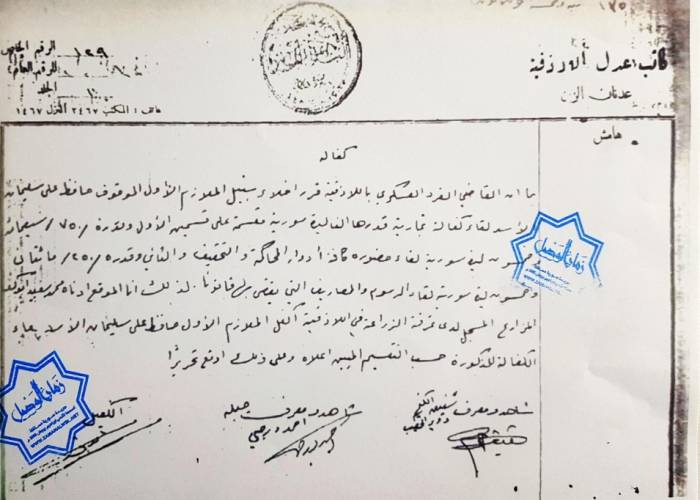 كاتب عدل اللاذقية
عدنان
الرقم الخاص ١٢٩
الرقم العام
الجلد
هاتف : المكتب ٢٤٦٢ المنزل ١٤٦٧
هامش
كفالة
بما ان القاضي الفرد العسكري باللاذقية قرر اخلاء سبيل الملازم الأول الموقوف حافظ علي سليمان
الأسد لقاء كفالة تجارية قدرها الف ليرة سورية مقسمة على قسمين الأول وقدره /٧٥٠/ سبعمائة
وخمسون ليرة سورية لقاء حضوره كافة أدوار المحاكمة والتحقيق والثاني وقدره /٢٥٠/ مائتان
وخمسون ليرة سورية لقاء الرسوم والمصاريف التي يقضى بها قانونا. لذلك انا الموقع ادناه محمد سعيد
المزارع المسجل لدى غرفة الزراعة في اللاذقية أكفل الملازم الأول حافظ علي سليمان الأسد
الكفالة المذكورة حسب التقسيم المبين اعلاه وعلى ذلك اوقع تحريرًا
شاهد ومعرف
شاهد ومعرف
الكفيل
زمان الوصل
زمان الوصل
WWW.ZAMANALWSL.NET